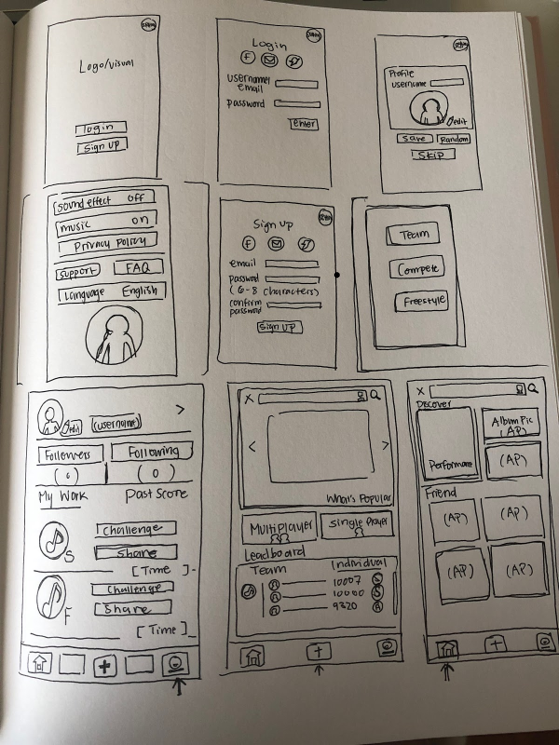 Logo/visual
login
Sign up
Login
username
email
password
enter
Profile
username
edit
save
Random
SKIP
sound effect off
music on
Privacy policy
support
FAQ
Language English
Sign up
email
password
(6-8 characters)
confirm
password
Sign up
Team
Compete
Freestyle
edit
(username)
>
Followers
Following
( 0 )
My Work
Past Score
S
Challenge
Share
[Time]
F
Challenge
Share
[Time]
X
< >
What's Popular
Multiplayer
Single Player
Leadboard
Team
Individual
10007
10000
9320
X
Discover
Performance
Album Pic
(AP)
(AP)
Friend
(AP)
(AP)
(AP)
(AP)